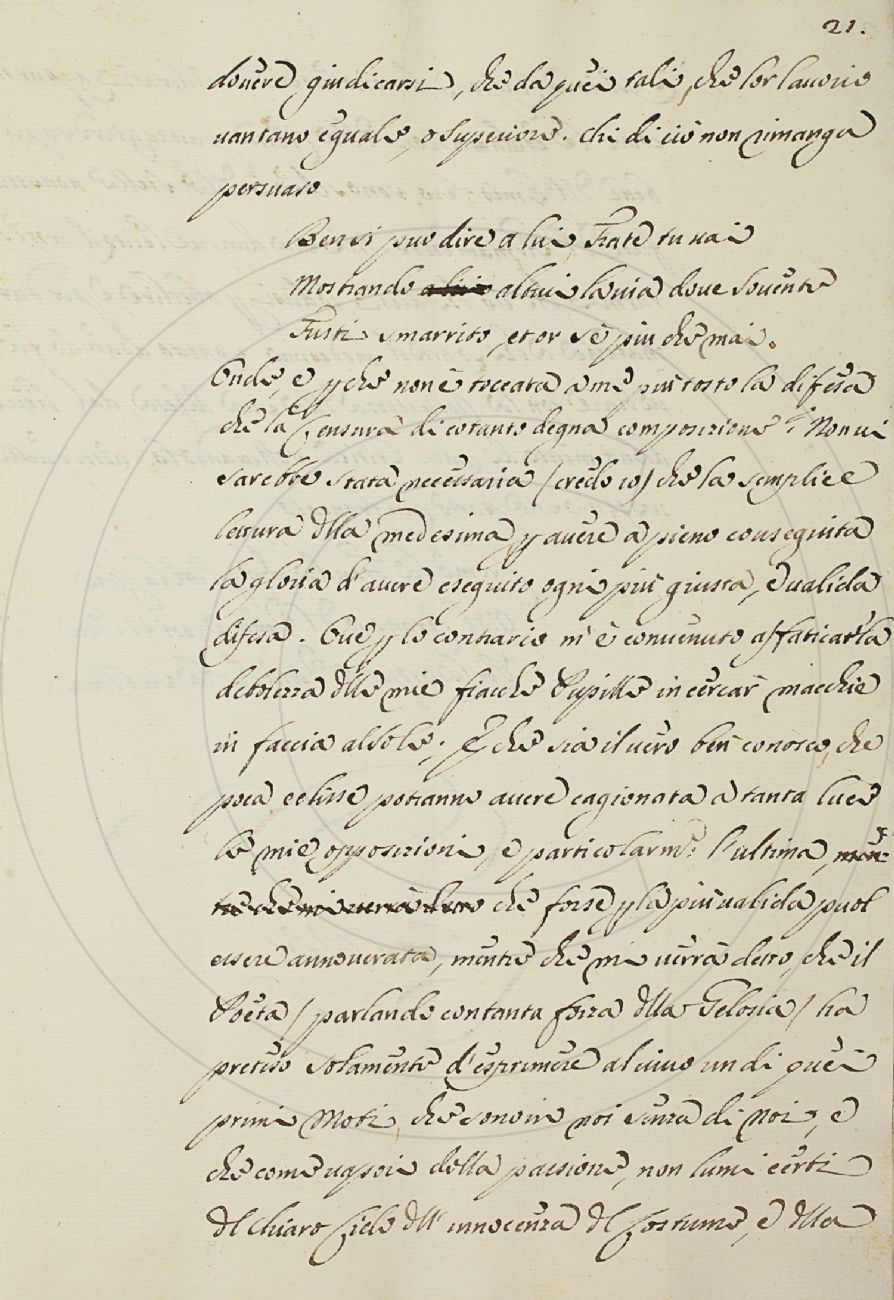 21.
douere giudicarsi, che da quei tali, che lor lauorio
uantano eguale, o superiore. Chi di ciò non rimanga
persuaso
Ben si può dire a lui Frate tu uai
Mostrando a lui altrui la uia doue souente
Fusti smarrito, et or se' più che mai.
Onde, e p che non è toccata a me più tosto la difesa
che la Censura di cotanto degna composizione? Non ui
sarebbe stata necessaria (credo io) che la semplice
lettura dlla medesima p auere a pieno conseguita
la gloria d'auere eseguito ogni più giusta, e ualida
difesa. Oue p lo contrario m'è conuenuto affaticar la
debolezza dlle mie fiacche Pupille in cercar macchie
in faccia al Sole; E che sia il uero ben conosco, che
poca eclisse potranno auere cagionata a tanta luce
le mie opposizioni, e particolarm.te l'ultima, men-
tre che mi uerrà detto che forse p la più ualida puol
essere annouerata, mentre che mi uerrà detto, che il
Poeta (parlando con tanta forza dlla Gelosia) ha
preteso solamente d'esprimere al uiuo un di quei
primi Moti, che sono in noi senza di noi, e
che come uapori della passione, non lumi certi
dl chiaro Cielo dll'innocenza dl Costume, e dlla